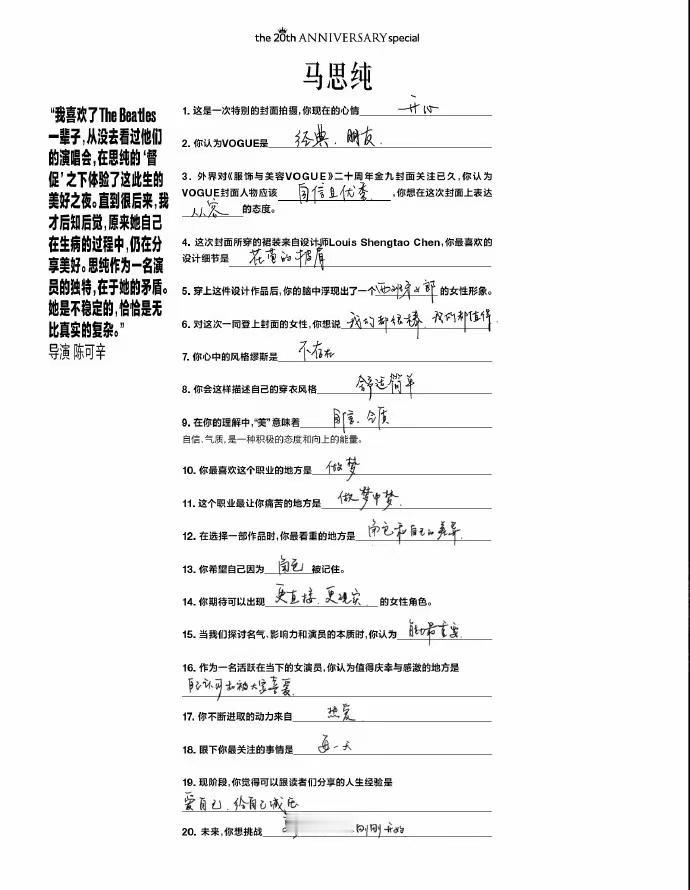 the 20th ANNIVERSARY special
马思纯
“我喜欢了The Beatles
一辈子，从没去看过他们
的演唱会，在思纯的‘督
促’之下体验了这此生的
美好之夜。直到很后来，我
才后知后觉，原来她自己
在生病的过程中，仍在分
享美好。思纯作为一名演
员的独特，在于她的矛盾。
她是不稳定的，恰恰是无
比真实的复杂。”
导演 陈可辛
1. 这是一次特别的封面拍摄，你现在的心情 开心
2. 你认为VOGUE是 经典、朋友
3. 外界对《服饰与美容VOGUE》二十周年金九封面关注已久，你认为
VOGUE封面人物应该 自信且优秀 ，你想在这次封面上表达
从容 的态度。
4. 这次封面所穿的裙装来自设计师Louis Shengtao Chen，你最喜欢的
设计细节是 花苞的披肩
5. 穿上这件设计作品后，你的脑中浮现出了一个 西班牙女郎 的女性形象。
6. 对这次一同登上封面的女性，你想说 我们都很棒、我们都值得
7. 你心中的风格缪斯是 不存在
8. 你会这样描述自己的穿衣风格 舒适简单
9. 在你的理解中，“美”意味着 自信、气质
自信、气质，是一种积极的态度和向上的能量。
10. 你最喜欢这个职业的地方是 做梦
11. 这个职业最让你痛苦的地方是 做梦中梦
12. 在选择一部作品时，你最看重的地方是 角色和自己的差异
13. 你希望自己因为 角色 被记住。
14. 你期待可以出现 更直接、更现实 的女性角色。
15. 当我们探讨名气、影响力和演员的本质时，你认为 最重要
16. 作为一名活跃在当下的女演员，你认为值得庆幸与感激的地方是
自己认可和被大家喜爱
17. 你不断进取的动力来自 热爱
18. 眼下你最关注的事情是 每一天
19. 现阶段，你觉得可以跟读者们分享的人生经验是
爱自己、给自己减压
20. 未来，你想挑战 刚刚开始